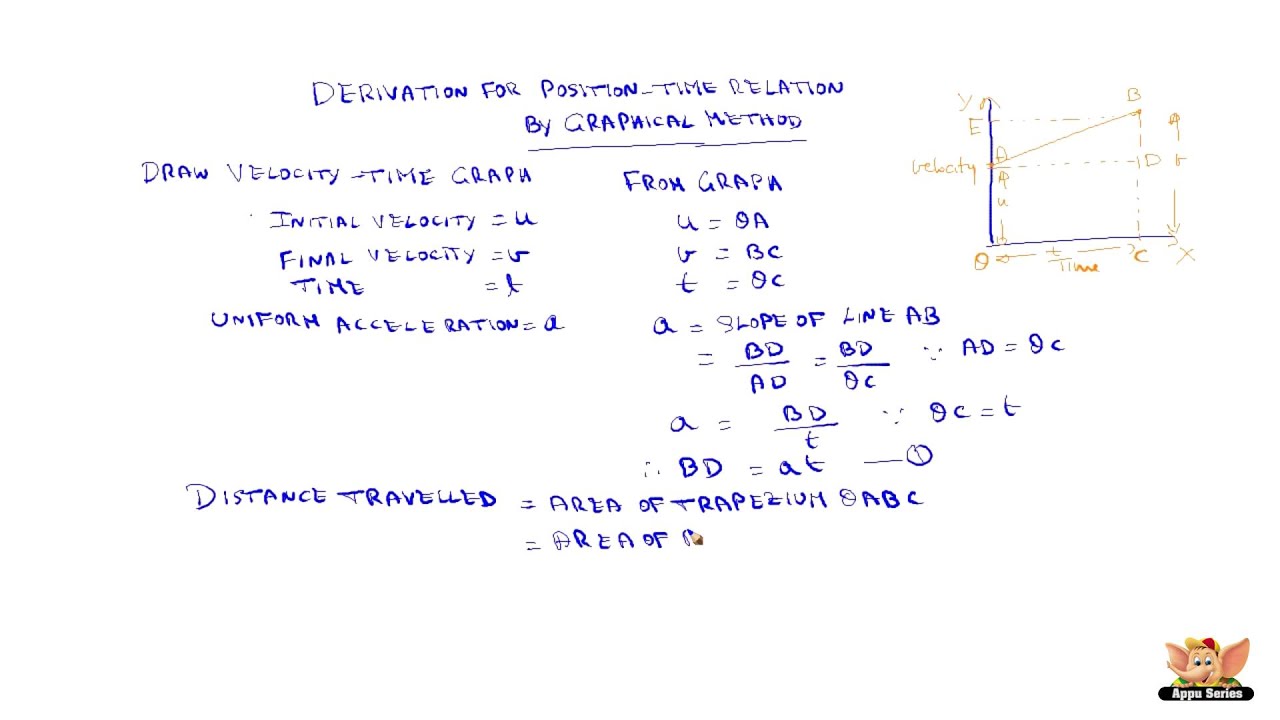 DERIVATION FOR POSITION-TIME RELATION
BY GRAPHICAL METHOD
DRAW VELOCITY-TIME GRAPH
INITIAL VELOCITY = u
FINAL VELOCITY = v
TIME = t
UNIFORM ACCELERATION = a
FROM GRAPH
u = OA
v = BC
t = OC
a = SLOPE OF LINE AB
= BD/AD = BD/OC ∵ AD = OC
a = BD/t ∵ OC = t
∴ BD = at — ①
DISTANCE TRAVELLED = AREA OF TRAPEZIUM OABC
= AREA OF
Y
B
E
A
velocity
D
v
u
O
t
C
X
Time
Appu Series